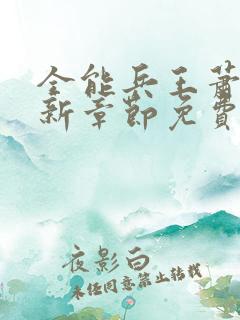 全能兵王萧
新章节免费
夜影白
未经同意禁止转载